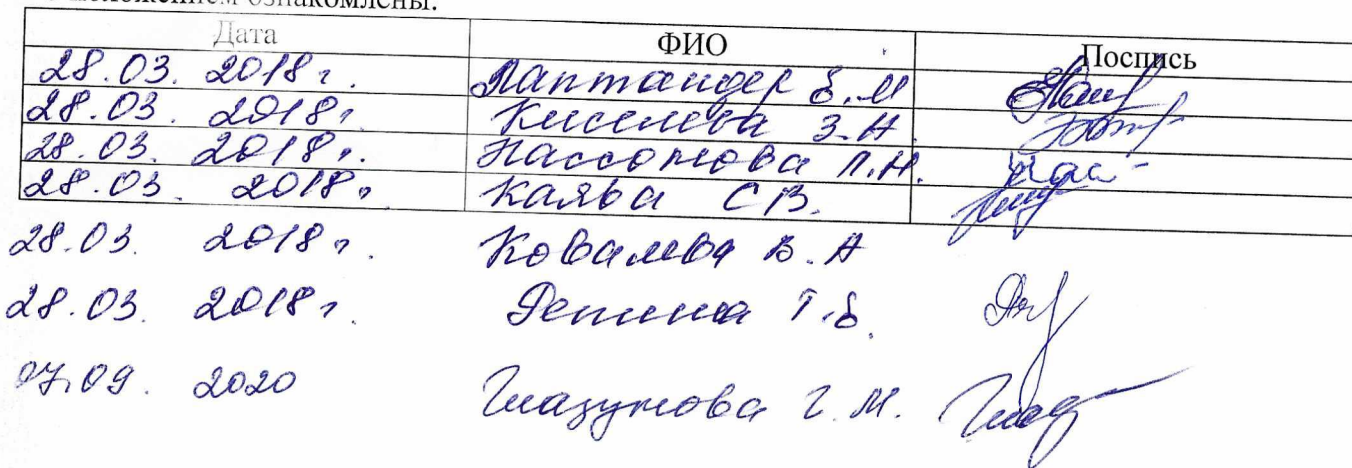 ознакомлены:
Дата ФИО Поспись
28.03. 2018г. Лаптандер Е.М
28.03. 2018г Киселева З.Н.
28.03. 2018г. Нассонова Л.Н. Нас-
28.03. 2018г Каява С.В.
28.03. 2018г. Ковалева В.А
28.03. 2018г. Т.Е.
07.09. 2020 Глазунова Г.М. Глаз